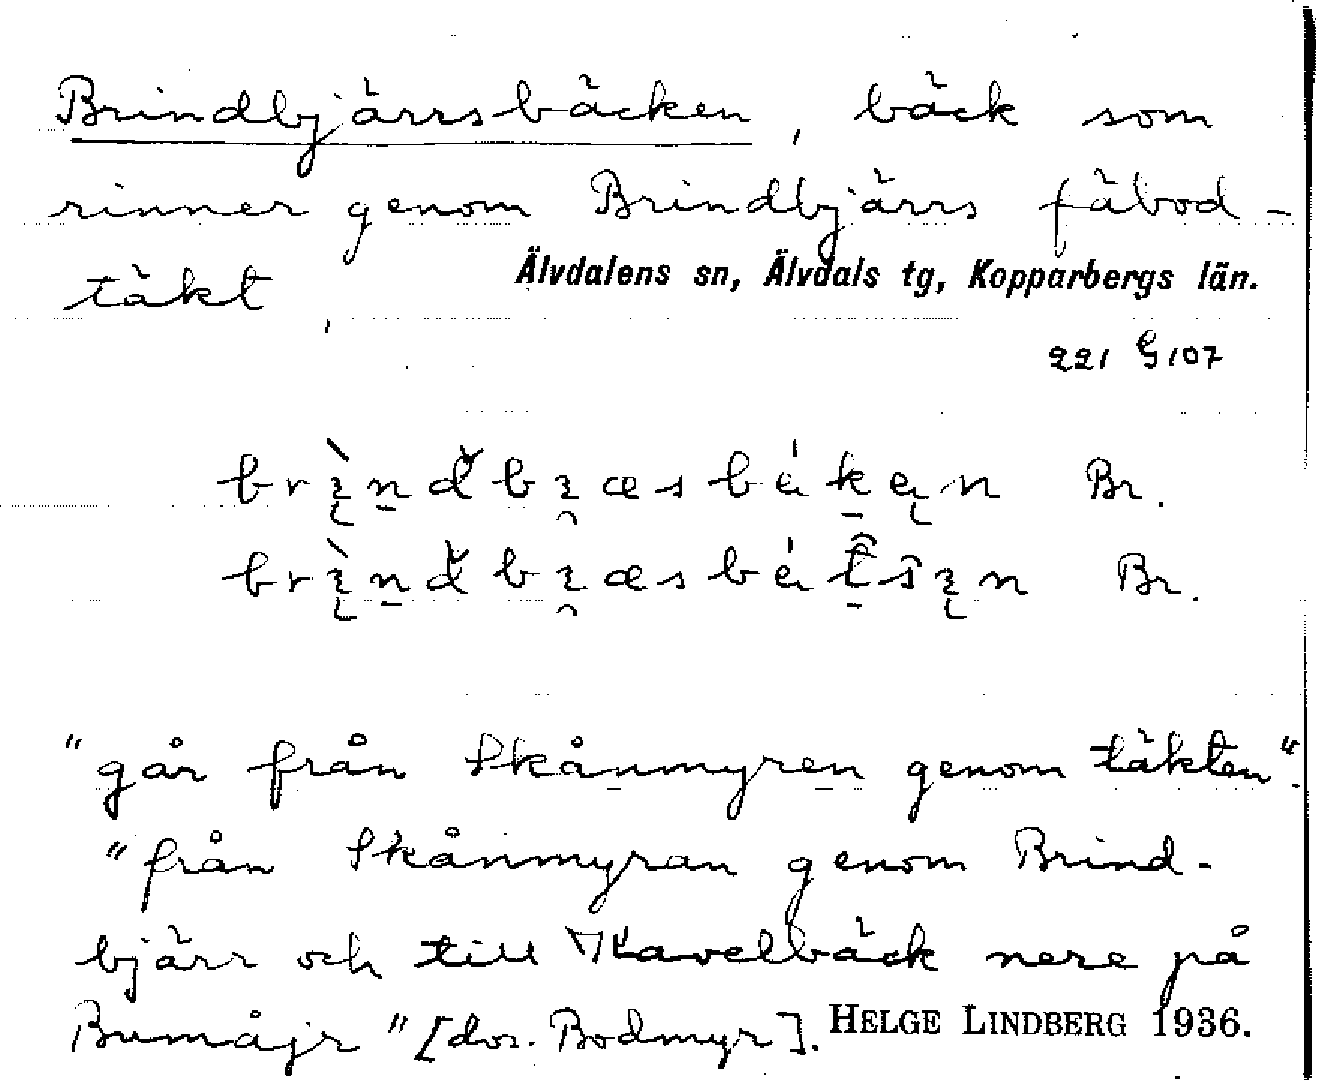 Brindbjärrsbäcken, bäck som
rinner genom Brindbjärrs fäbod-
täkt.
Älvdalens sn, Älvdals tg, Kopparbergs län.
221 G 107
Br.
Br.
"går från Skånmyren genom täkten".
"från Skånmyran genom Brind-
bjärr och till Kavelbäck nere på
Bumåjr" [dvs. Bodmyr].
HELGE LINDBERG 1936.